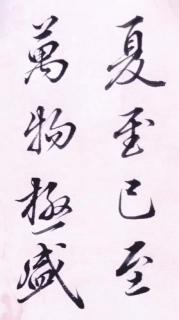 夏至已至
萬物極盛